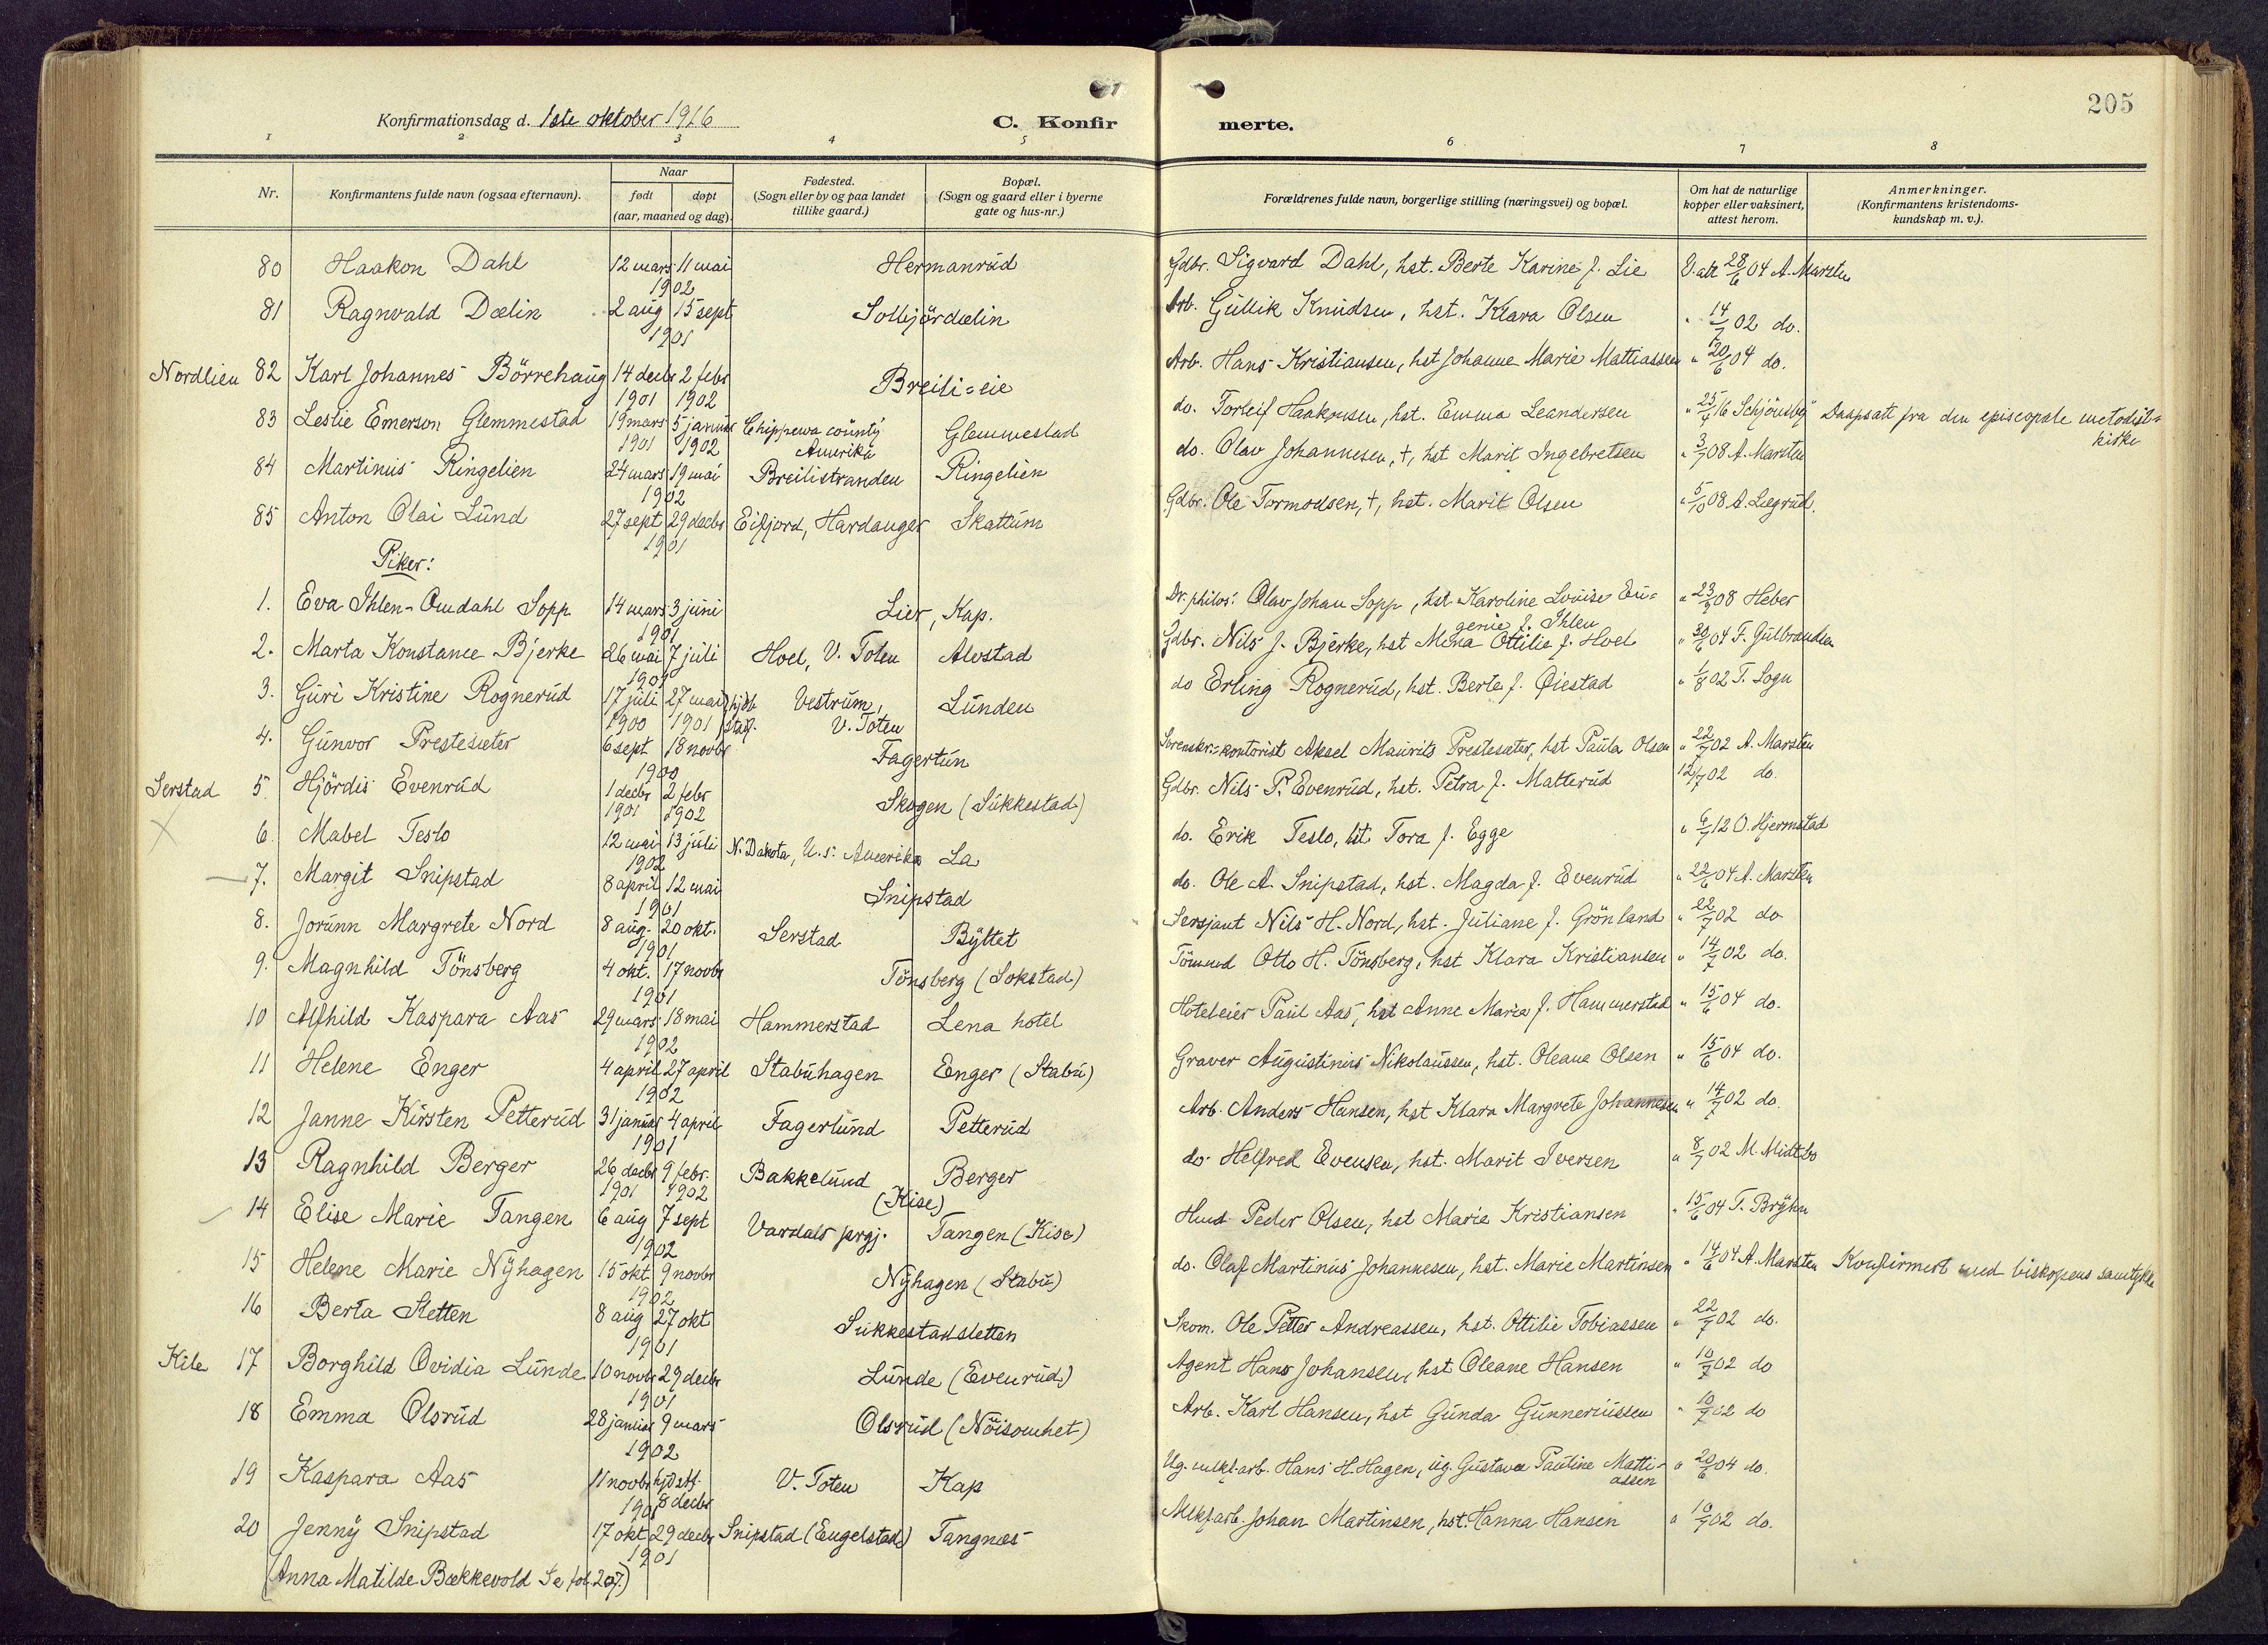 205
Konfirmationsdag d. 1ste oktober 1916
C. Konfirmerte.
1 2 3 4 5 6 7 8
Nr. Konfirmantens fulde navn (ogsaa efternavn). Naar født døpt (aar, maaned og dag). Fødested. (Sogn eller by og paa landet tillike gaard.) Bopæl. (Sogn og gaard eller i byerne gate og hus-nr.) Forældrenes fulde navn, borgerlige stilling (næringsvei) og bopæl. Om hat de naturlige kopper eller vaksinert, attest herom. Anmerkninger. (Konfirmantens kristendomskundskap m. v.).
80 Haakon Dahl 12 mars 11 mai 1902 Hermanrud Gdbr. Sigvard Dahl, hst. Berte Karine f. Lie V. att 28/6 04 A. Marsten
81 Ragnvald Dælin 2 aug 15 sept 1901 Solbjördælin Arb. Gullik Knudsen, hst. Klara Olsen " 14/7 02 do.
Nordlien 82 Karl Johannes Börrehaug 14 decbr 1901 2 febr 1902 Breili-eie Arb. Hans Kristiansen, hst Johanne Marie Mattiassen " 20/6 04 do.
83 Leslie Emerson Glemmestad 19 mars 1901 5 januar 1902 Chippewa county Amerika Glemmestad do. Torleif Haakensen, hst. Emma Leandersen " 25/9 16 Schjönsby Daapsatt fra den episcopale metodist-kirke
84 Martinus Ringelien 24 mars 19 mai 1902 Breilistranden Ringelien do. Olav Johannesen, †, hst Marit Ingebretsen " 3/7 08 A. Marsten
85 Anton Olai Lund 27 sept 29 decbr 1901 Eifjord, Hardanger Skattum Gdbr. Ole Tormodsen, †, hst. Marit Olsen " 5/10 08 A. Liegrud.
Piker:
1. Eva Ihlen-Omdahl Sopp 14 mars 3 juni 1901 Lier, Kap. Dr. philos. Olav Johan Sopp, hst. Karoline Lovise Eugenie f. Ihlen " 23/9 08 Heber
2. Marta Konstance Bjerke 26 mai 7 juli 1901 Hoel, V. Toten Alvstad Gdbr. Nils J. Bjerke, hst Mina Ottilie f. Hoel " 30/6 04 F. Gulbrandsen
3. Guri Kristine Rognerud 17 juli 1900 27 mai 1901 hjdb. stadf. Vestrum, V. Toten Lunden do Erling Rognerud, hst. Berte f. Øiestad " 1/8 02 T. Sogn
4. Gunvor Prestesæter 6 sept 18 novbr 1900 Fagertun Sorenskr.-kontorist Aksel Maurits Prestesæter, hst Paula Olsen " 22/7 02 A. Marsten
Serstad 5. Hjördis Evenrud 1 decbr 1901 2 febr 1902 Skogen (Sukkestad) Gdbr. Nils P. Evenrud, hst. Petra f. Matterud 12/7 02 do.
X 6. Mabel Teslo 12 mai 13 juli 1902 N. Dakota, U. s. Amerika La do. Erik Teslo, hst. Tora f. Egge " 6/7 12 O. Hjermstad
7. Margit Snipstad 8 april 12 mai 1901 Snipstad do. Ole A. Snipstad, hst. Magda f. Evenrud " 22/6 04 A. Marsten
8. Jorunn Margrete Nord 8 aug. 20 okt. 1901 Serstad Byttet Sersjant Nils H. Nord, hst. Juliane f. Grönland " 22/7 02 do
9. Magnhild Tönsberg 4 okt. 17 novbr 1901 Tönsberg (Sokstad) Tömmd Otto H. Tönsberg, hst Klara Kristiansen " 14/7 02 do.
10 Alfhild Kaspara Aas 29 mars 18 mai 1902 Hammerstad Lena hotel Hoteleier Paul Aas, hst Anne Maria f. Hammerstad " 15/6 04 do.
11 Helene Enger 4 april 27 april 1902 Stabuhagen Enger (Stabu) Graver Augustinus Nikolaussen, hst. Oleane Olsen " 15/6 04 do.
12 Janne Kirsten Petterud 31 januar 4 april 1901 Fagerlund Petterud Arb. Anders Hansen, hst Klara Margrete Johannesen " 14/7 02 do.
13 Ragnhild Berger 26 decbr 1901 9 febr. 1902 Bakkelund (Kise) Berger do. Helfred Evensen, hst. Marit Iversen " 8/7 02 M. Midtbo
14 Elise Marie Tangen 6 aug 7 sept 1902 Vardals prgj. Tangen (Kise) Hmd Peder Olsen, hst Marie Kristiansen " 15/6 04 T. Bryhn
15 Helene Marie Nyhagen 15 okt 9 novbr 1902 Nyhagen (Stabu) do. Olaf Martinus Johannesen, hst. Marie Martinsen " 14/6 04 A. Marsten Konfirmert med biskopens samtykke
16 Berta Sletten 8 aug 27 okt 1901 Sukkestadsletten Skom. Ole Petter Andreassen, hst. Ottilie Tobiassen " 22/7 02 do.
Kile 17 Borghild Ovidia Lunde 10 novbr 29 decbr 1901 Lunde (Evenrud) Agent Hans Johansen, hst Oleane Hansen " 10/7 02 do
18 Emma Olsrud 28 januar 9 mars 1902 Olsrud (Nöisomhet) Arb. Karl Hansen, hst Gunda Gunneriussen " 10/7 02 do
19 Kaspara Aas 11 novbr hjd stf. 8 decbr 1901 V. Toten Kap Ug. mlkf.arb. Hans H. Hagen, ug. Gustava Pauline Mattiassen " 20/6 04 do.
20 Jenny Snipstad 17 okt 29 decbr 1901 Snipstad (Engelstad) Tangnes Mlkf.arb. Johan Martinsen, hst. Hanna Hansen " 10/7 02 do.
(Anna Matilde Bækkevold Se fol. 207.)